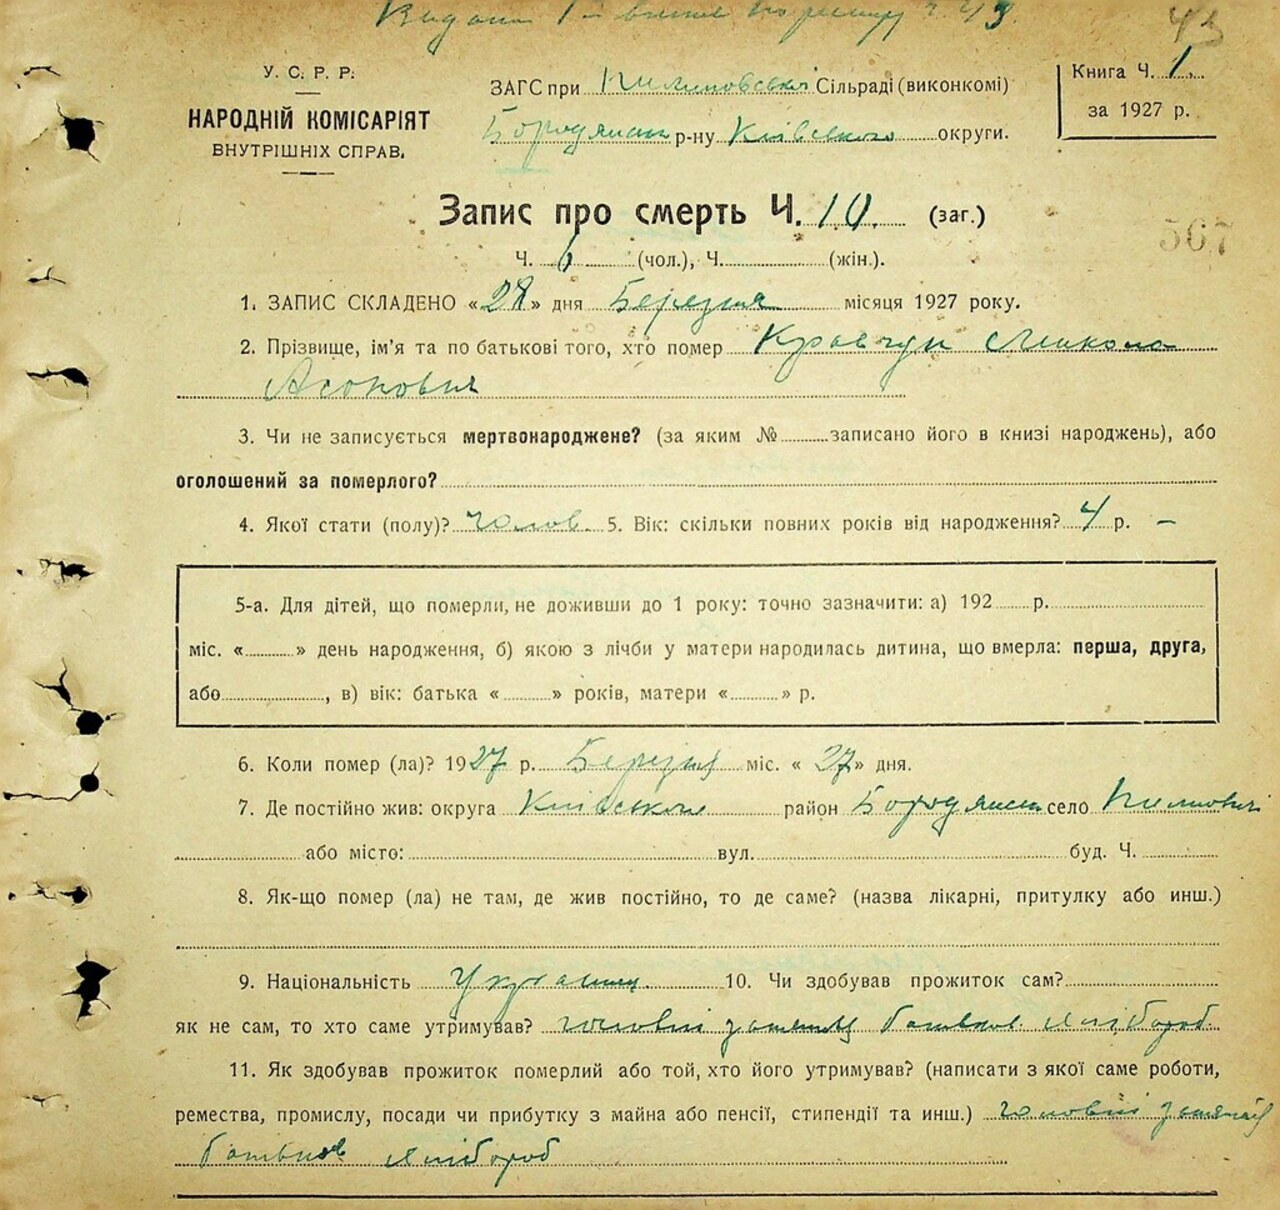 43
У. С. Р. Р.
НАРОДНІЙ КОМІСАРІЯТ
ВНУТРІШНІХ СПРАВ.
ЗАГС при Пилиповській Сільраді (виконкомі)
Бородянськ р-ну Київського округи.
Книга Ч. 1.
за 1927 р.
Запис про смерть Ч. 10. (заг.)
507
Ч. 6 (чол.), Ч. (жін.).
1. ЗАПИС СКЛАДЕНО «28» дня Березня місяця 1927 року.
2. Прізвище, ім'я та по батькові того, хто помер Кравчук Микола
3. Чи не записується мертвонароджене? (за яким № записано його в книзі народжень), або
оголошений за померлого?
4. Якої стати (полу)? чолов. 5. Вік: скільки повних років від народження? 4 р. –
5-а. Для дітей, що померли, не доживши до 1 року: точно зазначити: а) 192 р.
міс. « » день народження, б) якою з лічби у матери народилась дитина, що вмерла: перша, друга,
або , в) вік: батька « » років, матери « » р.
6. Коли помер (ла)? 1927 р. Березня міс. « 27» дня.
7. Де постійно жив: округа Київської район Бородянськ село
або місто: вул. буд. Ч.
8. Як-що помер (ла) не там, де жив постійно, то де саме? (назва лікарні, притулку або инш.)
9. Національність Українец. 10. Чи здобував прожиток сам?
як не сам, то хто саме утримував? головні заняття батьков. хлібороб.
11. Як здобував прожиток померлий або той, хто його утримував? (написати з якої саме роботи,
ремества, промислу, посади чи прибутку з майна або пенсії, стипендії та инш.) головні заняття
батьков хлібороб